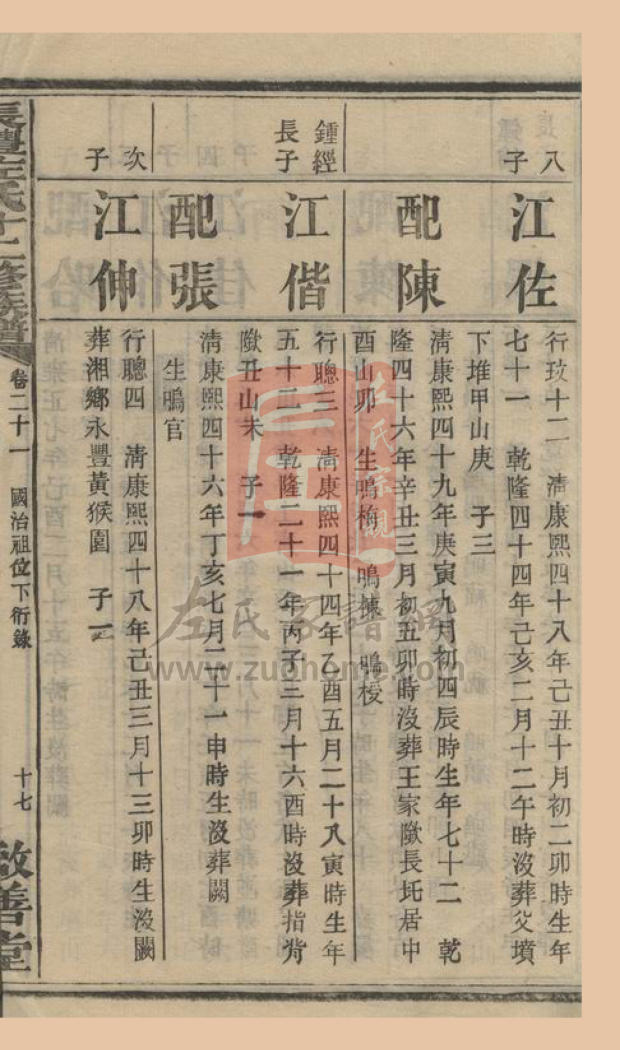 八子
江佐
行玟十二 淸康熙四十八年己丑十月初二卯時生年
七十一 乾隆四十四年己亥二月十二午時沒葬父墳
下堆甲山庚 子三
配陳
淸康熙四十九年庚寅九月初四辰時生年七十二 乾
隆四十六年辛丑三月初五卯時沒葬王家隞長圫居中
酉山卯 生鳴梅 鳴楝 鳴㮴
鍾經長子
江偕
行聰三 淸康熙四十四年乙酉五月二十八寅時生年
五十二 乾隆二十一年丙子三月十六酉時沒葬指背
隞丑山未 子一
配張
淸康熙四十六年丁亥七月二十一申時生沒葬闕
生鳴官
次子
江伸
行聰四 淸康熙四十八年己丑三月十三卯時生沒闕
葬湘鄉永豐黃猴園 子一
長澧左氏十二修族譜
卷二十一 國治祖位下衍錄
十七
敦善堂
左氏宗親
左氏家譜網
www.zuohome.com